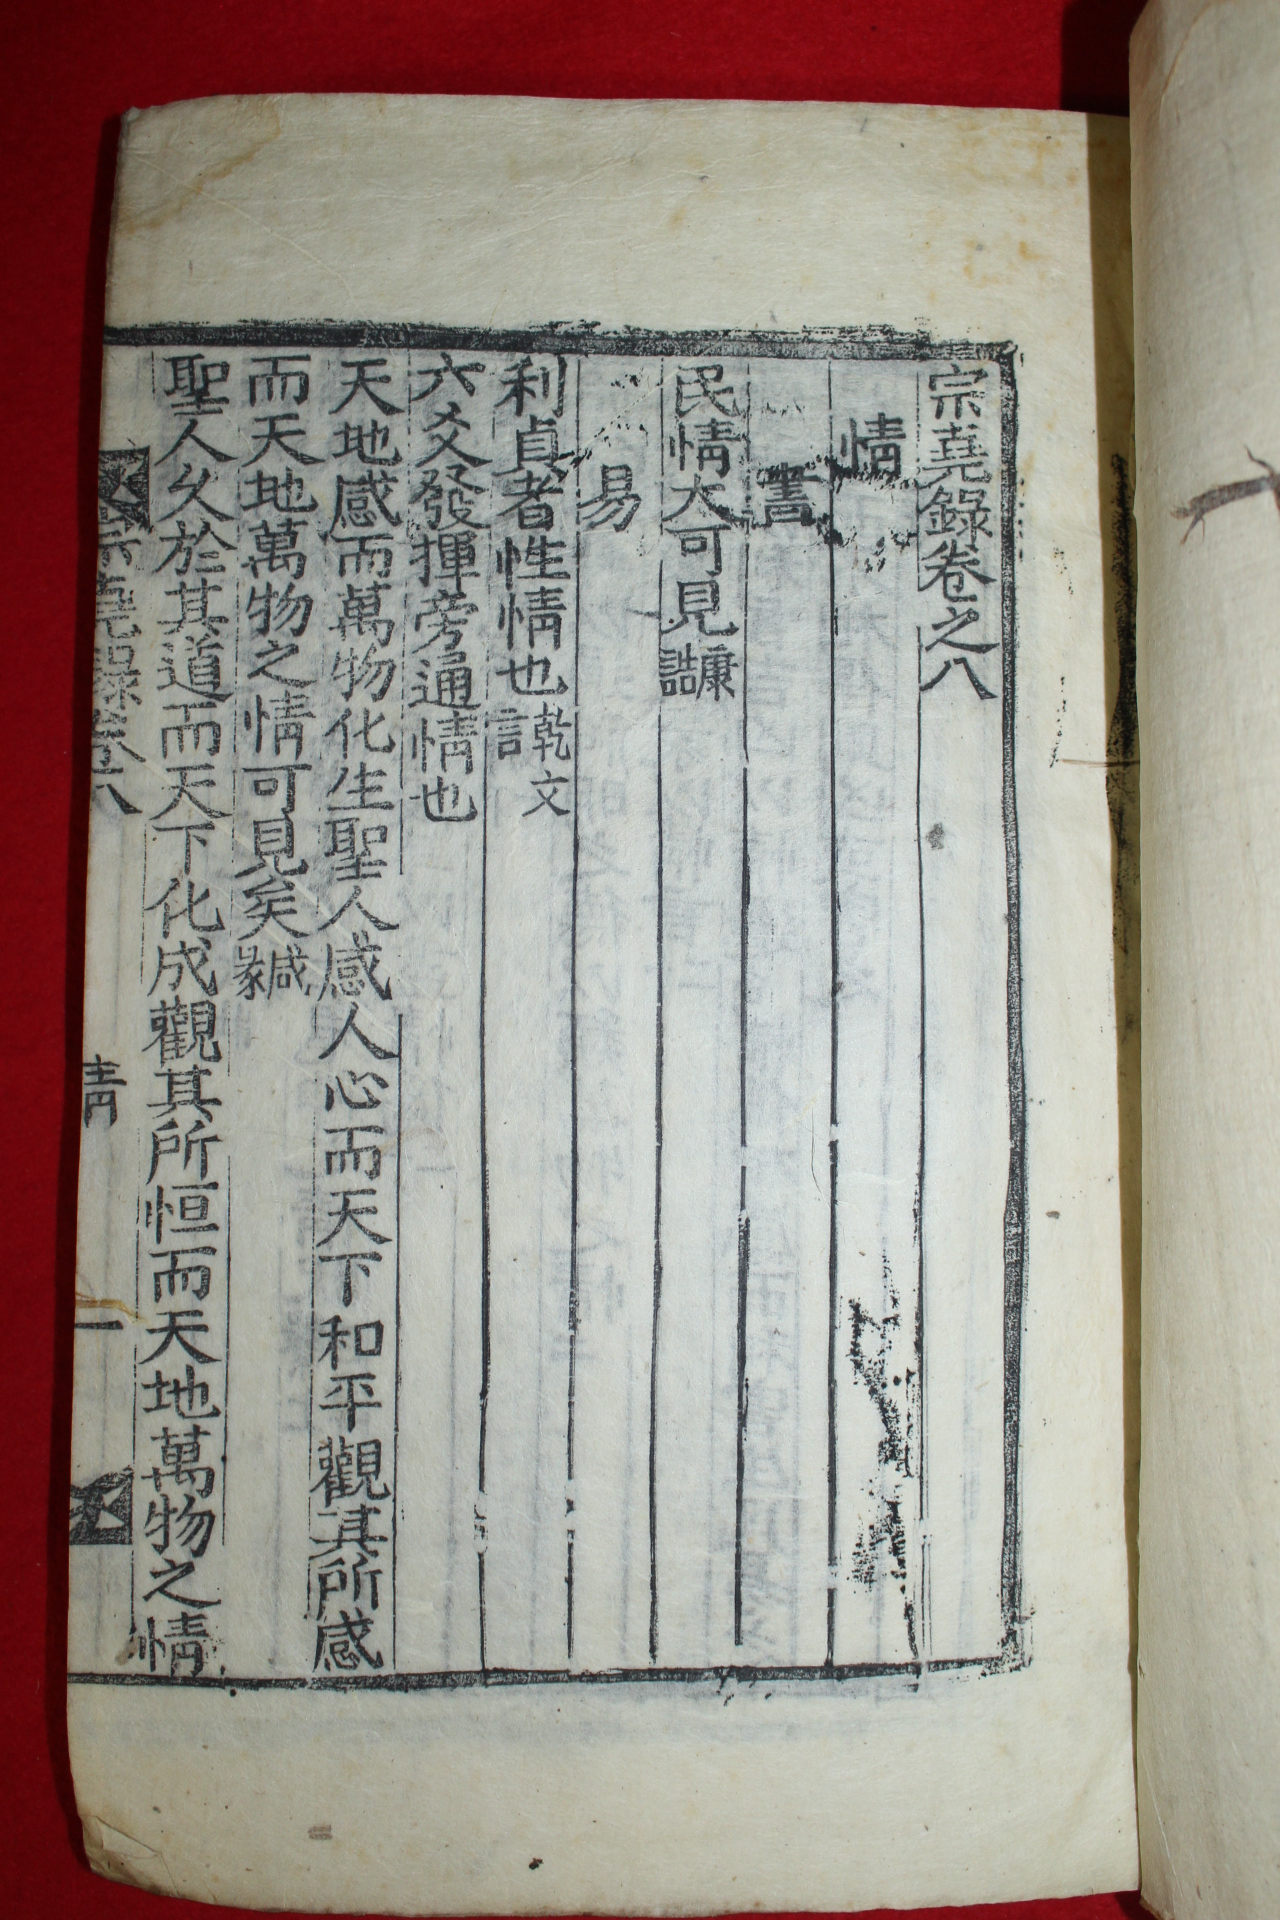 宗堯錄卷之八
情
書
民情大可見 康誥
易
利貞者性情也 乾文言
六爻發揮旁通情也
天地感而萬物化生聖人感人心而天下和平觀其所感
而天地萬物之情可見矣 咸彖
聖人久於其道而天下化成觀其所恒而天地萬物之情
宗堯錄卷八 情 一